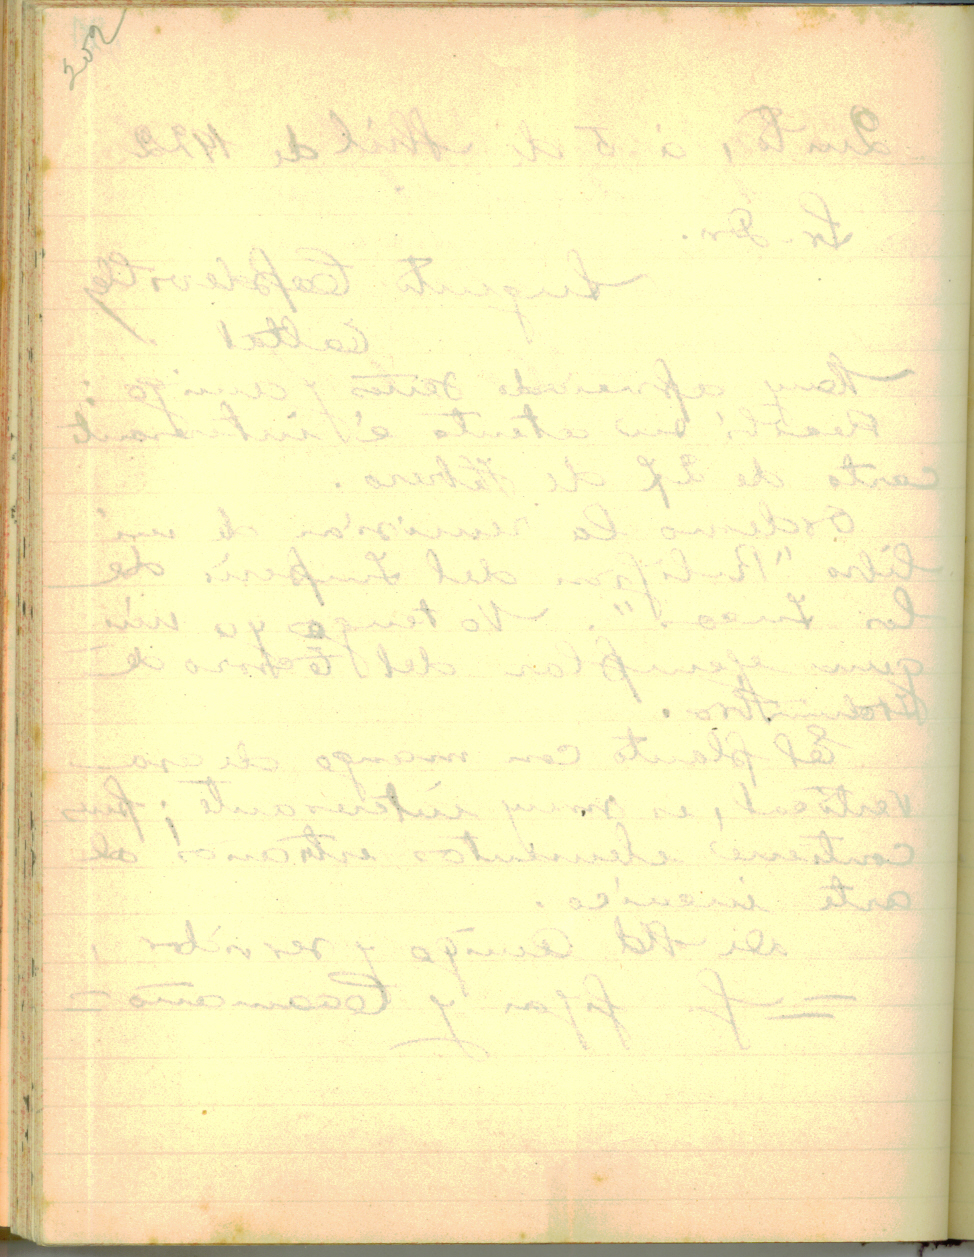 Quito, á 5 de Abril de 1922
Sr. Dr.
Augusto Capdeville
Taltal
Muy apreciado Señor y amigo:
Recibí su atenta é interesante
carta de 27 de Febrero.
Ordeno la remisión de mi
libro "Religión del Imperio de
los Incas". No tengo ya nin
gun ejemplar del Tesoro de
El plato con mango de ca
vertical, es muy interesante; pues
contiene elementos extraños al
arte incaico.
de Ud. amigo y servidor,
J. Jijón y Caamaño